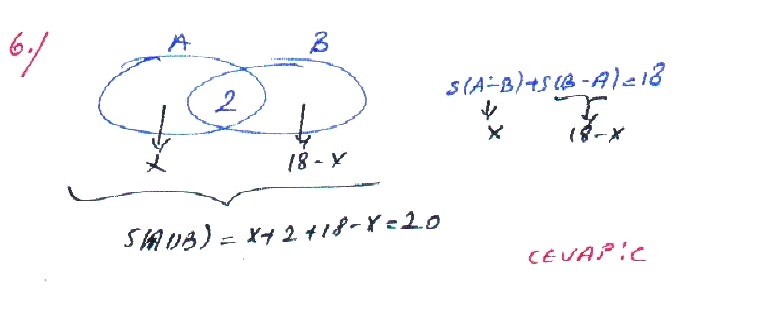 6./
A B
2
s(A-B)+s(B-A)=18
x 18-x
x 18-x
s(A∪B) = x+2+18-x=20
CEVAP:C